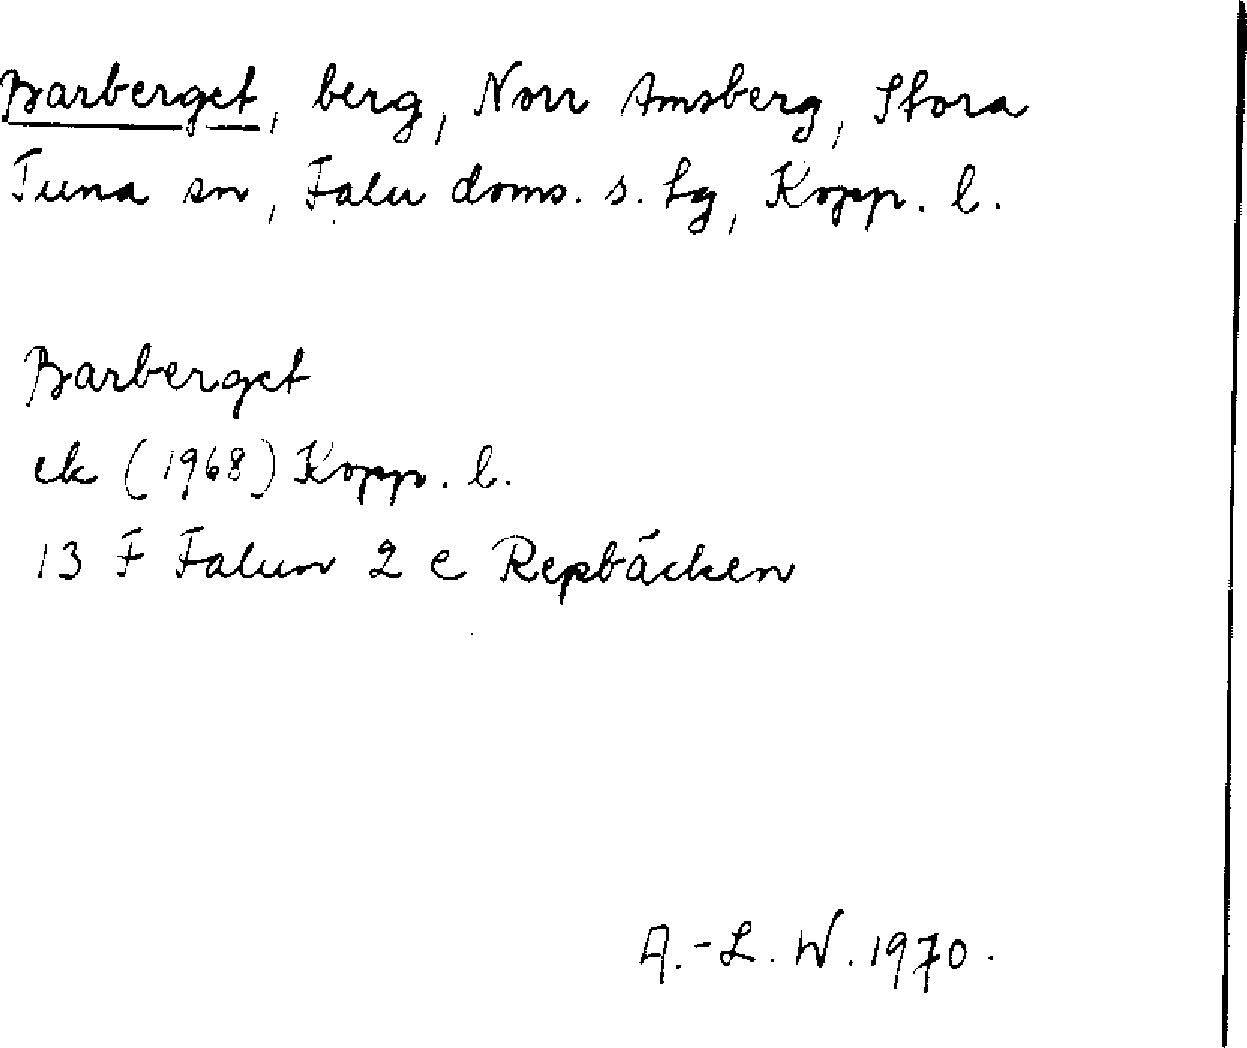 Barberget, berg, Norr Amsberg, Stora
Tuna sn, Falu doms. s. tg, Kopp. l.
Barberget
ek (1968) Kopp. l.
13 F Falun 2 e Repbäcken
A.-L. W. 1970.